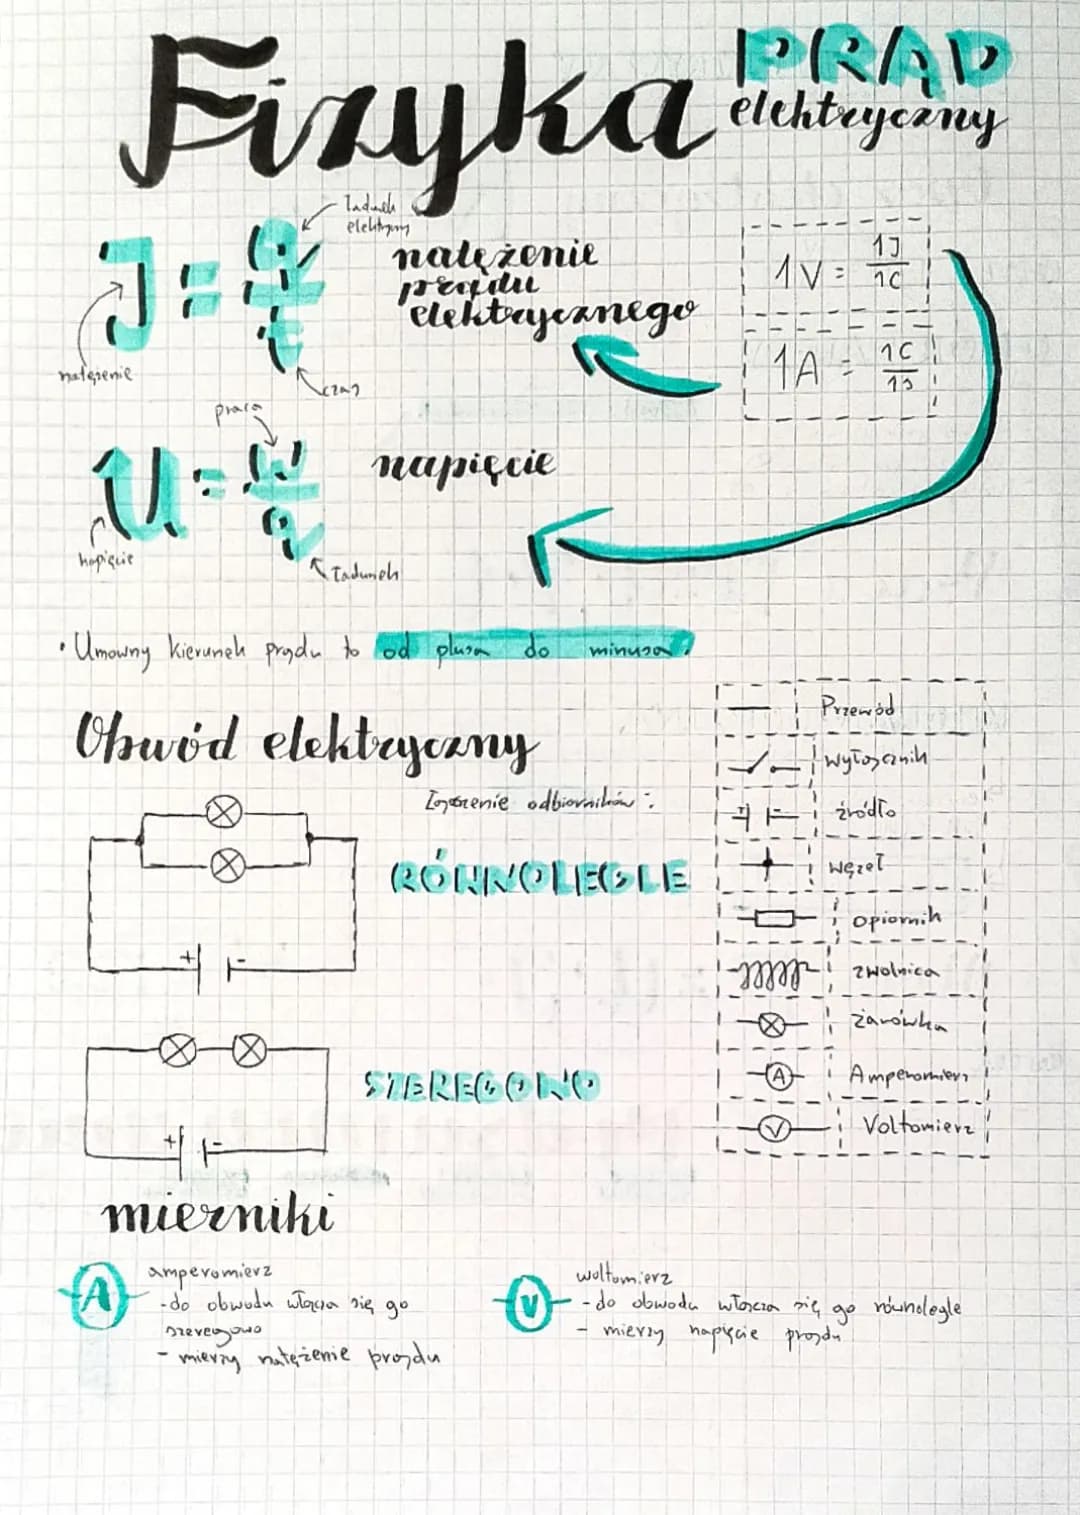 Fizyka
PRĄD
elektryczny
J = q/t
ładunek
elektryczny
natężenie
czas
natężenie
prądu
elektrycznego
1V = 1J/1C
1A = 1C/1s
U = W/q
praca
napięcie
ładunek
napięcie
• Umowny kierunek prądu to od plusa do minusa.
Obwód elektryczny
odbiorników:
RÓWNOLEGLE
+ -
SZEREGOWO
+ -
Przewód
wyłącznik
+ - źródło
węzeł
opiornik
zwolnica
żarówka
A Amperomierz
V Voltomierz
mierniki
A
amperomierz
-do obwodu włącza się go
szeregowo
- mierzy natężenie prądu
V
woltomierz
-do obwodu włącza się go równolegle
- mierzy napięcie prądu